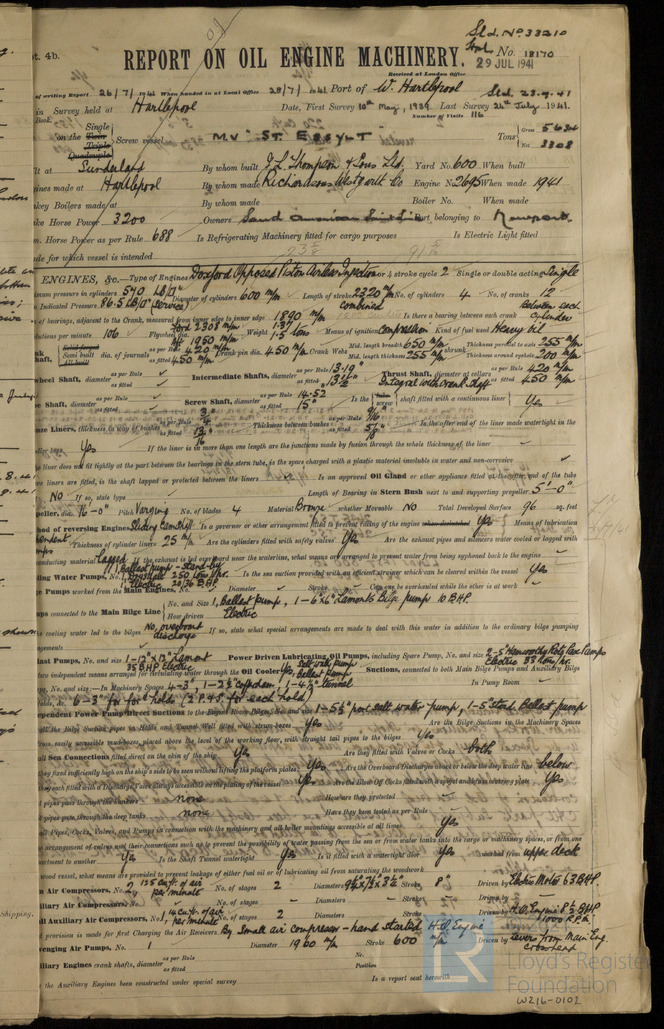 Sld. No 33210
pt. 4b.
REPORT ON OIL ENGINE MACHINERY.
No. 18170
29 JUL 1941
Received at London Office
of writing Report 26/7/1941 When handed in at Local Office 28/7/1941 Port of W. Hartlepool
in Survey held at Hartlepool Date, First Survey 10th May, 1939 Last Survey 26th July 1941
Number of Visits 116
on the Single Triple Quadruple Screw vessel M.V. "St. Essylt" Tons Gross 5634 Net 3308
Sunderland By whom built J. L. Thompson & Sons Ltd. Yard No. 600 When built
gines made at Hartlepool By whom made Richardsons Westgarth Co Engine No. 2695 When made 1941
nkey Boilers made at By whom made Boiler No. When made
ke Horse Power 3200 Owners South American Saint Line Port belonging to Newport.
m. Horse Power as per Rule 688 Is Refrigerating Machinery fitted for cargo purposes Is Electric Light fitted
de for which vessel is intended
ENGINES, &c. Type of Engines Doxford Opposed Piston Airless Injection 2 or 4 stroke cycle 2 Single or double acting Single
mum pressure in cylinders 570 lb/□" Diameter of cylinders 600 m/m Length of stroke 2320 m/m Combined No. of cylinders 4 No. of cranks 12
Indicated Pressure 86.5 lb/□" (Service)
of bearings, adjacent to the Crank, measured from inner edge to inner edge 1890 m/m Is there a bearing between each crank Between each cylinder
lutions per minute 106 Flywheel dia. Weight Means of ignition Compression Kind of fuel used Heavy oil
Ford 2308 m/m 1.37
Aft 1950 m/m 1.5 tons
dia. of journals as per Rule 420 m/m as fitted 450 m/m Crank pin dia. 450 m/m Crank Webs Mid. length breadth 650 m/m Mid. length thickness 255 m/m Thickness parallel to axis 255 m/m Thickness around eyehole 200 m/m
wheel Shaft, diameter as per Rule as fitted Intermediate Shafts, diameter as per Rule 13.19" as fitted 13½" Thrust Shaft, diameter at collars as per Rule 420 m/m as fitted 450 m/m
Integral with crank shaft
be Shaft, diameter as per Rule as fitted Screw Shaft, diameter as per Rule 14.52 as fitted 15" Is the screw shaft fitted with a continuous liner Yes
nze Liners, thickness in way of bushes as per Rule as fitted Thickness between bushes as per Rule 9/16" as fitted 5/8" Is the after end of the liner made watertight in the
Yes If the liner is in more than one length are the junctions made by fusion through the whole thickness of the liner
e liner does not fit tightly at the part between the bearings in the stern tube, is the space charged with a plastic material insoluble in water and non-corrosive
liners are fitted, is the shaft lapped or protected between the liners Is an approved Oil Gland or other appliance fitted at the after end of the tube
No If so, state type Length of Bearing in Stern Bush next to and supporting propeller 5'-0"
peller, dia. 16'-0" Pitch Varying No. of blades 4 Material Bronze whether Moveable No Total Developed Surface 96 sq. feet
hod of reversing Engines Sliding Camshaft Is a governor or other arrangement fitted to prevent racing of the engine Yes Means of lubrication
Thickness of cylinder liners 25 m/m Are the cylinders fitted with safety valves Yes Are the exhaust pipes and silencers water cooled or lagged with
onducting material Lagged If the exhaust is led overboard near the waterline, what means are arranged to prevent water from being syphoned back to the engine
1 Ballast pump - Stand-by
ling Water Pumps, No. Electric 250 tons/hr. 20/36 BHP Is the sea suction provided with an efficient strainer which can be cleared within the vessel Yes
e Pumps worked from the Main Engines, No. Diameter Stroke Can one be overhauled while the other is at work
ps connected to the Main Bilge Line No. and Size 1, Ballast pump, 1-6"x6" Lamonts Bilge pump 10 BHP.
How driven Electric
e cooling water led to the bilges No, overboard discharge If so, state what special arrangements are made to deal with this water in addition to the ordinary bilge pumping
gements
last Pumps, No. and size 1-12"x12" Lamont 35 BHP Electric Power Driven Lubricating Oil Pumps, including Spare Pump, No. and size 2-5" Hamworthy Rotary Vac. Pumps Electric 35 tons/hr.
two independent means arranged for circulating water through the Oil Cooler Yes, salt water pump Ballast pump Suctions, connected to both Main Bilge Pumps and Auxiliary Bilge
s, No. and size:—In Machinery Spaces 4-3", 1-2½ Cofferdam, 1-4½" tunnel In Pump Room
ds, &c. 6-3" for holds (2 P. & S. for each hold)
ependent Power Pump Direct Suctions to the Engine Room Bilges, No. and size 1-5½" por. salt water pump, 1-5" Stard. Ballast pump
all the Bilge Suction pipes in Holds and Tunnel Well fitted with strum-boxes Yes Are the Bilge Suctions in the Machinery Spaces
easily accessible mud-boxes, placed above the level of the working floor, with straight tail pipes to the bilges Yes
ll Sea Connections fitted direct on the skin of the ship Yes Are they fitted with Valves or Cocks both
they fixed sufficiently high on the ship's side to be seen without lifting the platform plates Yes Are the Overboard Discharges above or below the deep water line below
they each fitted with a Discharge Valve always accessible on the plating of the vessel Yes Are the Blow Off Cocks fitted with a spigot and brass covering plate Yes
t pipes pass through the bunkers none How are they protected
t pipes pass through the deep tanks none Have they been tested as per Rule
all Pipes, Cocks, Valves, and Pumps in connection with the machinery and all boiler mountings accessible at all times Yes
e arrangement of valves and their connections such as to prevent the possibility of water passing from the sea or from water tanks into the cargo or machinery spaces, or from one
artment to another Yes Is the Shaft Tunnel watertight Yes Is it fitted with a watertight door Yes worked from upper deck
wood vessel, what means are provided to prevent leakage of either fuel oil or of lubricating oil from saturating the woodwork
n Air Compressors, No. 2, 135 cu. ft. of air per minute No. of stages 2 Diameters Stroke 8" Driven by Electric Motor 63 BHP.
iliary Air Compressors, No. No. of stages Diameters Stroke Driven by
ll Auxiliary Air Compressors, No. 1, 14 cu. ft. of air per minute No. of stages 2 Diameters Stroke Driven by H.O. Engine 8½ BHP 1000 R.P.M.
provision is made for first Charging the Air Receivers By Small air compressor - hand started H.O. Engine
venging Air Pumps, No. 1 Diameter 1960 m/m Stroke 600 m/m Driven by Levers from Main Eng. Crosshead
iliary Engines crank shafts, diameter as per Rule as fitted No. Position
e the Auxiliary Engines been constructed under special survey Is a report sent herewith
Shipping.
LR
Lloyd's Register
Foundation
W216-0102